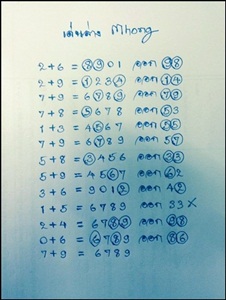 เด่นล่าง Mhong
2+6 = 8901 ออก 98
2+9 = 1234 ออก 14
7+9 = 6789 ออก 79
7+8 = 5678 ออก 53
1+3 = 4567 ออก 55
7+9 = 6789 ออก 57
5+8 = 3456 ออก 33
5+9 = 4567 ออก 62
3+6 = 9012 ออก 42
1+5 = 6789 ออก 33 X
2+4 = 6789 ออก 98
0+6 = 6789 ออก 86
7+9 = 6789